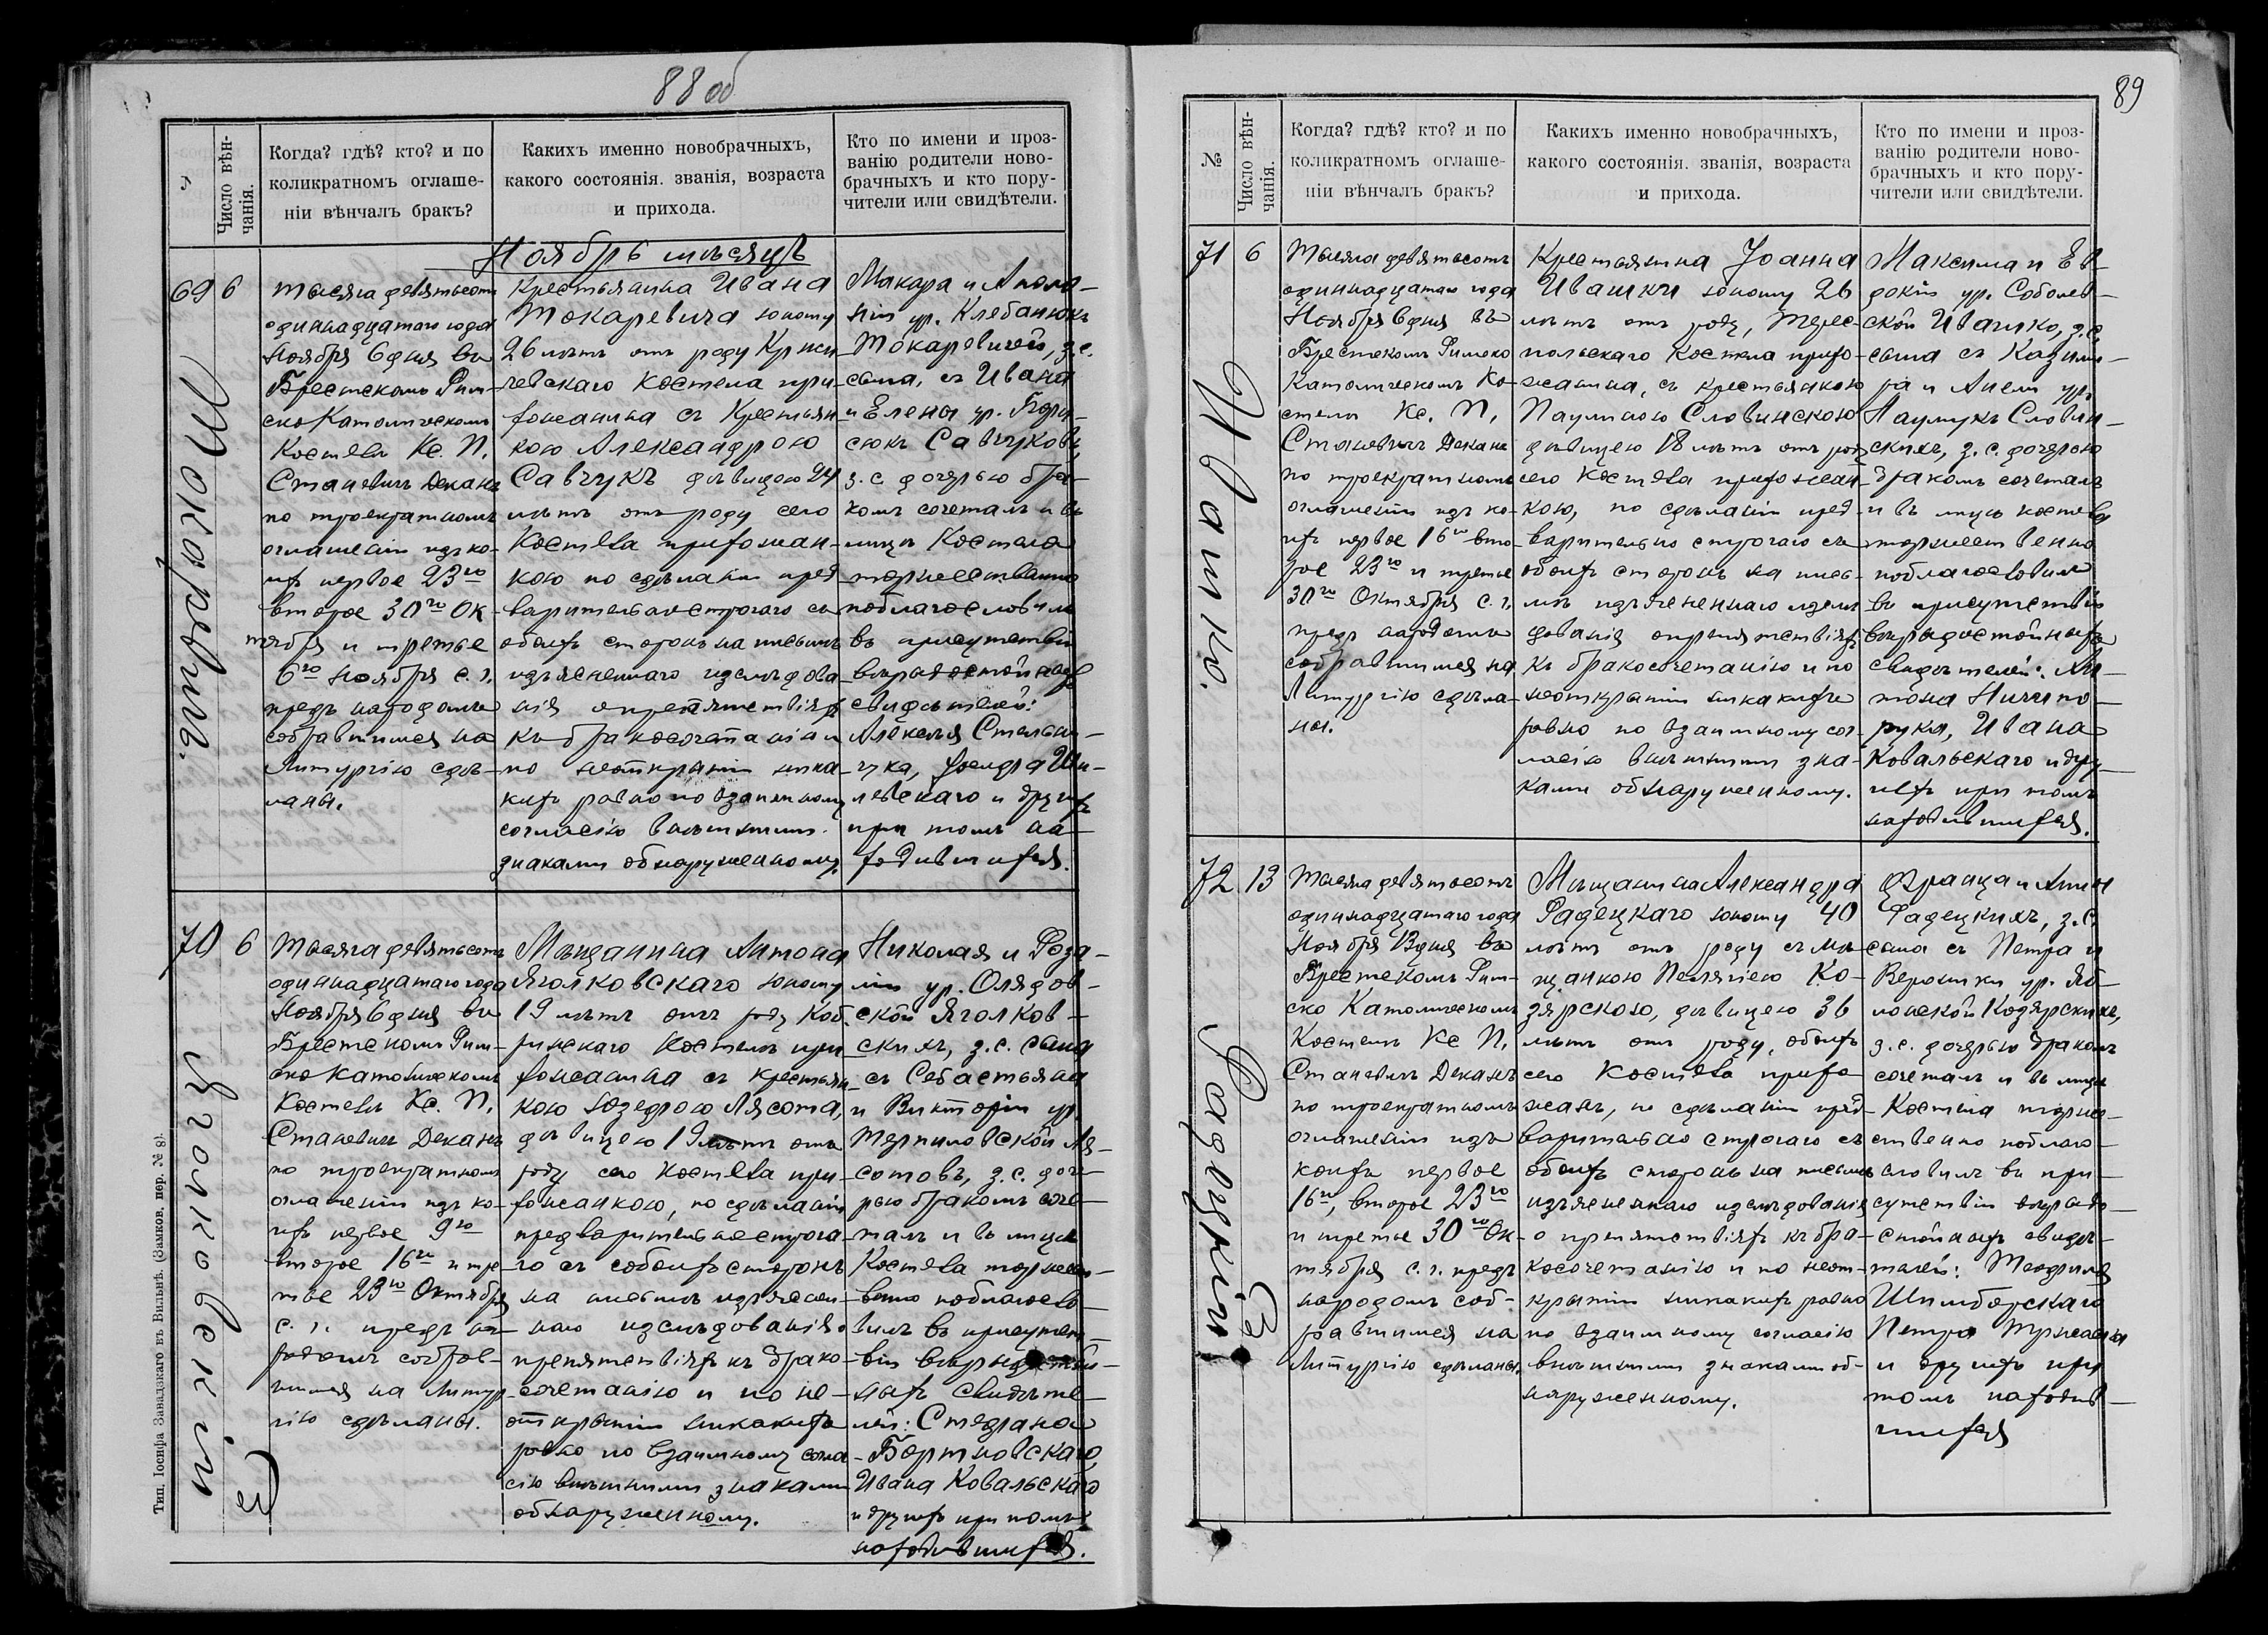 88 об
№
Число вѣн-
чанія.
Когда? гдѣ? кто? и по
коликратномъ оглаше-
ніи вѣнчалъ бракъ?
Какихъ именно новобрачныхъ,
какого состоянія, званія, возраста
и прихода.
Кто по имени и проз-
ванію родители ново-
брачныхъ и кто пору-
чители или свидѣтели.
Ноябрь мѣсяцъ
69 6
Токаревичъ.
тысяча девятьсотъ
одиннадцатаго года
Ноября 6 дня въ
Брестскомъ Рим-
ско Католическомъ
Костелѣ Кс. П.
Станевичъ Деканъ
по троекратномъ
оглашеніи изъ ко-
ихъ первое 23го
второе 30го Ок-
тября и третье
6го Ноября с. г.
предъ народомъ
собравшимся на
Литургію сдѣ-
ланы.
Крестьянина Ивана
Токаревича юношу
26 лѣтъ отъ роду Кржи
чевскаго Костела при-
хожанина съ Крестьян
кою Александрою
Савчукъ дѣвицею 24
лѣтъ отъ роду сего
Костела прихожан-
кою по сдѣланіи пред
варительно строгаго съ
обоихъ сторонъ на письмѣ
изъясненнаго изслѣдова
нія о препятствіяхъ
къ бракосочетанію и
по неоткрытіи ника
кихъ равно по взаимному
согласію внѣшними
знаками обнаруженному.
Макара и Аполо-
ніи ур. Клебанюкъ
Токаревичей, з. с.
сына, съ Ивана
и Елены ур. Бори-
сюкъ Савчуковъ,
з. с. дочерью бра-
комъ сочеталъ и въ
лицѣ Костела
торжественно
поблагословилъ
въ присутствіи
вѣрыдостойныхъ
свидѣтелей:
Алексѣя Стельма-
чука,
левскаго и другихъ
при томъ на-
ходившихся.
70 6
Яголковскій
Тысяча девятьсотъ
одиннадцатаго года
Ноября 6 дня въ
Брестскомъ Рим-
ско Католическомъ
Костелѣ Кс. П.
Станевичъ Деканъ
по троекратномъ
оглашеніи изъ ко-
ихъ первое 9го
второе 16го и тре-
тье 23го Октября
с. г. предъ на-
родомъ собрав-
шимся на Литур-
гію сдѣланы.
Мѣщанина Антона
Яголковскаго юношу
19 лѣтъ отъ роду Коб-
ринскаго Костела при
хожанина съ Крестьян
кою Юзефою Лясота,
дѣвицею 19 лѣтъ отъ
роду сего Костела при-
хожанкою, по сдѣланіи
предварительно строга-
го съ собоихъ сторонъ
на письмѣ изъяснен-
наго изслѣдованія о
препятствіяхъ къ брако-
сочетанію и по не-
открытіи никакихъ
равно по взаимному согла
сію внѣшними знаками
обнаруженному.
Николая и Роза-
ліи ур. Олядов-
ской Яголков-
скихъ, з. с. сына
съ Себастьяна
и Викторіи ур.
Терпиловской Ля-
сотовъ, з. с. доче-
рью бракомъ соче-
талъ и въ лицѣ
Костела торжест-
венно поблагосло-
вилъ въ присутст-
віи вѣрыдостой-
ныхъ свидѣте-
лей: Стефана
Бортновскаго,
Ивана Ковальскаго
и другихъ при томъ
находившихся.
Тип. Іосифа Завадзкаго въ Вильнѣ. (Замков. пер. № 8).
89
№
Число вѣн-
чанія.
Когда? гдѣ? кто? и по
коликратномъ оглаше-
ніи вѣнчалъ бракъ?
Какихъ именно новобрачныхъ,
какого состоянія, званія, возраста
и прихода.
Кто по имени и проз-
ванію родители ново-
брачныхъ и кто пору-
чители или свидѣтели.
71 6
Ивашко.
Тысяча девятьсотъ
одиннадцатаго года
Ноября 6 дня въ
Брестскомъ Римско
Католическомъ Ко-
стелѣ Кс. П.
Станевичъ Деканъ
по троекратномъ
оглашеніи изъ ко-
ихъ первое 16го вто-
рое 23го и третье
30го Октября с. г.
предъ народомъ
собравшимся на
Литургію сдѣла-
ны.
Крестьянина Іоанна
Ивашки юношу 26
лѣтъ отъ роду, Терес-
польскаго Костела прихо-
жанина, съ крестьянкою
Паулиною Словинскою
дѣвицею 18 лѣтъ отъ роду
сего Костела прихожан-
кою, по сдѣланіи пред-
варительно строгаго съ
обоихъ сторонъ на пись-
мѣ изъясненнаго изслѣ
дованія о препятствіяхъ
къ бракосочетанію и по
неоткрытіи никакихъ
равно по взаимному сог-
ласію внѣшними зна-
ками обнаруженному.
Максима и Ев-
докіи ур. Соболев-
ской Ивашко, з. с.
сына съ Казими-
ра и Анели ур.
Наумукъ Словин-
скихъ, з. с. дочерью
бракомъ сочеталъ
и въ лицѣ костела
торжественно
поблагословилъ
въ присутствіи
вѣрыдостойныхъ
свидѣтелей: Ан-
тона Ничипо-
рука, Ивана
Ковальскаго и дру-
гихъ при томъ
находившихся.
72 13
Радецкій
Тысяча девятьсотъ
одиннадцатаго года
Ноября 13 дня въ
Брестскомъ Рим-
ско Католическомъ
Костелѣ Кс П.
Станевичъ Деканъ
по троекратномъ
оглашеніи изъ
коихъ первое
16го, второе 23го
и третье 30го Ок-
тября с. г. предъ
народомъ соб-
равшимся на
Литургію сдѣланы.
Мѣщанина Александра
Радецкаго юношу 40
лѣтъ отъ роду съ мѣ-
щанкою Пелягіею Ко-
зярскою, дѣвицею 36
лѣтъ отъ роду, обоихъ
сего Костела прихо
жанъ, по сдѣланіи пред-
варительно строгаго съ
обоихъ сторонъ на письмѣ
изъясненнаго изслѣдованія
о препятствіяхъ къ бра-
косочетанію и по неот-
крытіи никакихъ равно
по взаимному согласію
внѣшними знаками об-
наруженному.
Франца и Анны
Радецкихъ, з. с.
сына съ Петра и
Вероники ур. Яб-
лонской Козярскихъ,
з. с. дочерью бракомъ
сочеталъ и въ лицѣ
Костела торже-
ственно поблаго-
словилъ въ при-
сутствіи вѣрыдо-
стойныхъ свидѣ-
телей: Теофиля
Шимборскаго
Петра
и другихъ при
томъ находив-
шихся